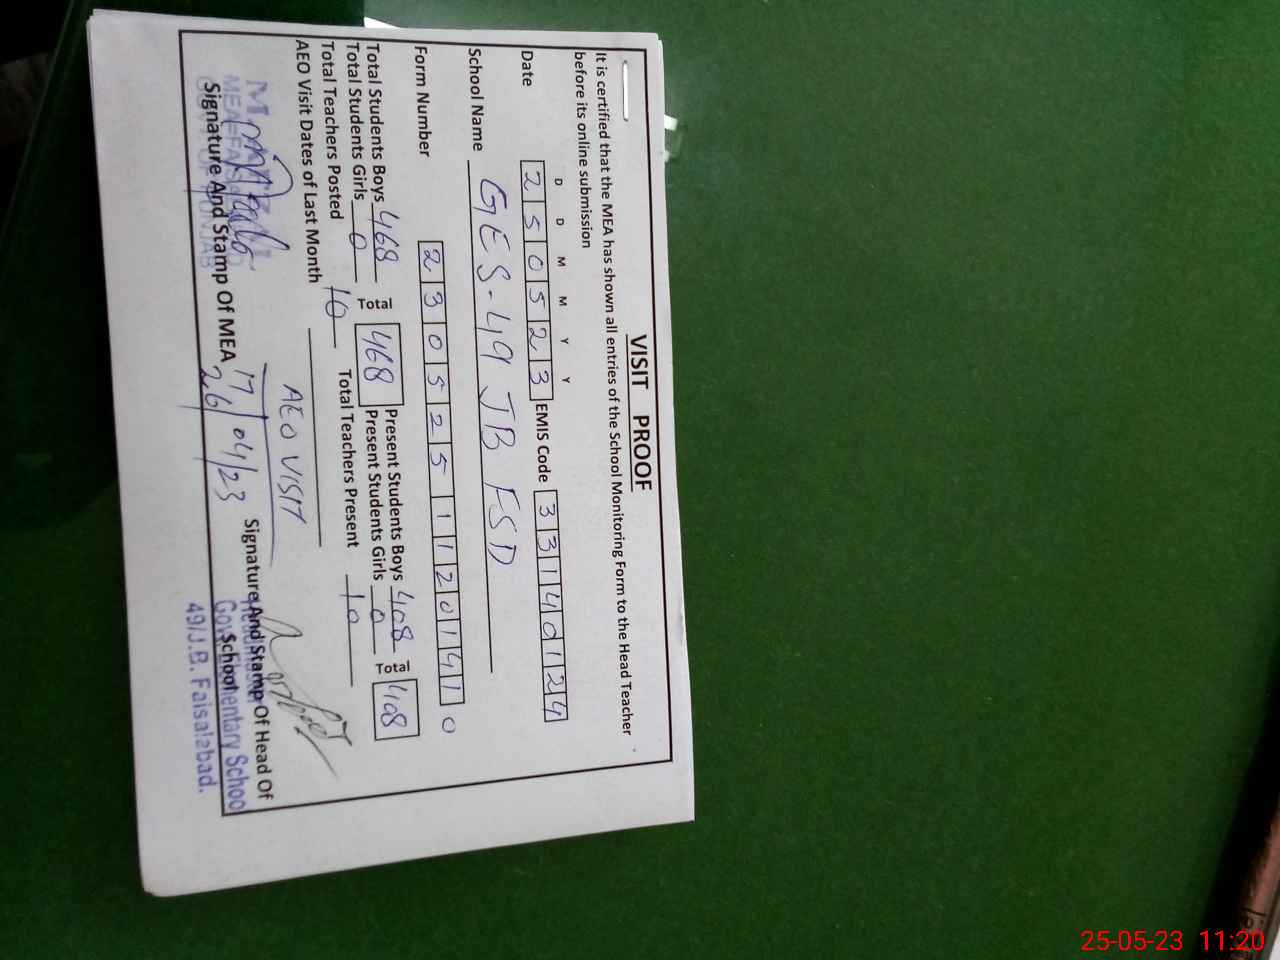 VISIT PROOF
It is certified that the MEA has shown all entries of the School Monitoring Form to the Head Teacher
before its online submission
D D M M Y Y
Date 2 5 0 5 2 3 EMIS Code 3 3 1 4 0 1 2 4
School Name GES-49 JB FSD
Form Number 2 3 0 5 2 5 1 1 2 0 1 4 1 0
Total Students Boys 468 Total 468 Present Students Boys 408 Total 408
Total Students Girls 0 Present Students Girls 0
Total Teachers Posted 10 Total Teachers Present 10
AEO Visit Dates of Last Month
AEO VISIT
17/04/23
26
Signature And Stamp Of MEA
Signature And Stamp Of Head Of
School
Elementary Schoo
49/J.B. Faisalabad.
25-05-23 11:20